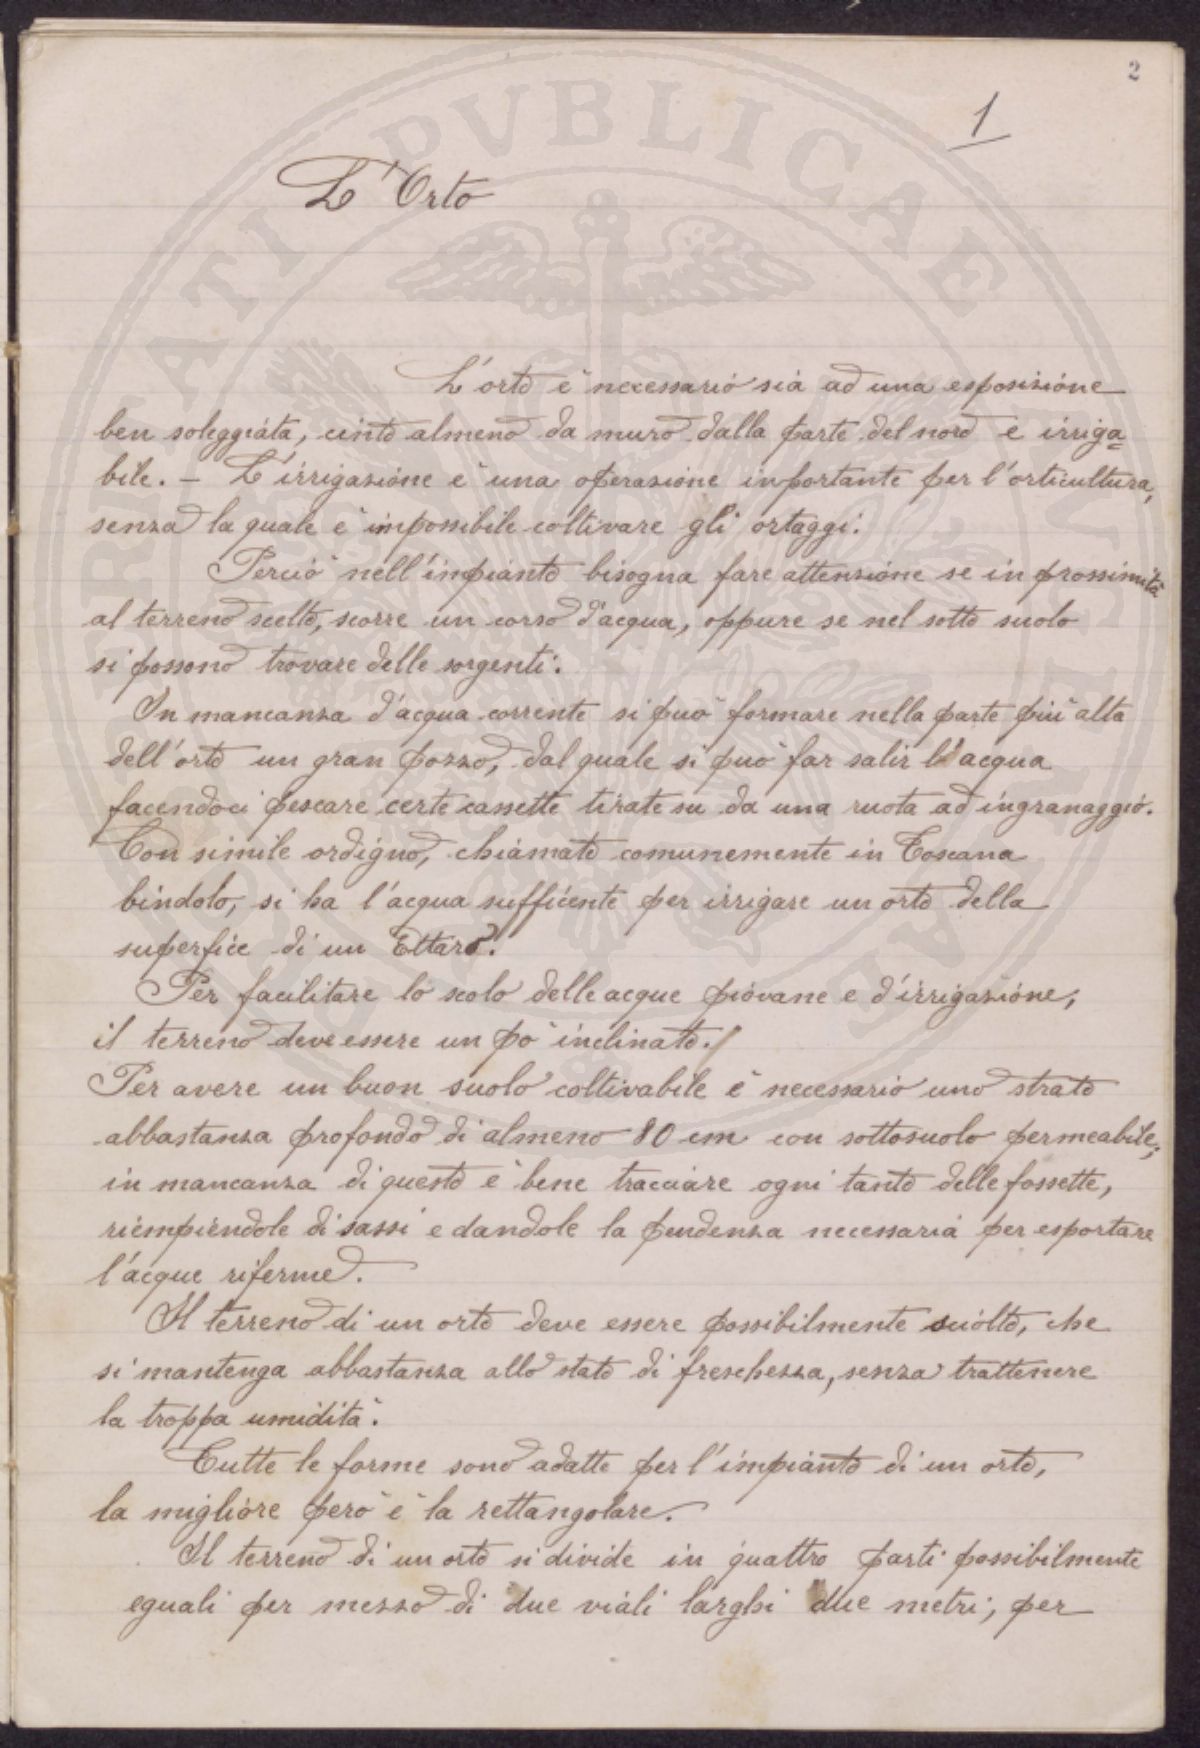 2
1
L'Orto
L'orto è necessario sia ad una esposizione
ben soleggiata, cinto almeno da muro dalla parte del nord e irriga=
bile. – L'irrigazione è una operazione importante per l'orticultura,
senza la quale è impossibile coltivare gli ortaggi.
Perciò nell'impianto bisogna fare attenzione se in prossimità
al terreno scelto, scorre un corso d'acqua, oppure se nel sotto suolo
si possono trovare delle sorgenti.
In mancanza d'acqua corrente si può formare nella parte più alta
dell'orto un gran pozzo, dal quale si può far salir l'acqua
facendoci pescare certe cassette tirate su da una ruota ad ingranaggio.
Con simile ordigno, chiamato comunemente in Toscana
bindolo, si ha l'acqua sufficente per irrigare un orto della
superfice di un Ettaro.
Per facilitare lo scolo delle acque piovane e d'irrigazione,
il terreno deve essere un pò inclinato.
Per avere un buon suolo coltivabile è necessario uno strato
abbastanza profondo di almeno 80 cm con sottosuolo permeabile;
in mancanza di questo è bene tracciare ogni tanto delle fossette,
riempiendole di sassi e dandole la pendenza necessaria per esportare
l'acque riferme.
Il terreno di un orto deve essere possibilmente sciolto, che
si mantenga abbastanza allo stato di freschezza, senza trattenere
la troppa umidità.
Tutte le forme sono adatte per l'impianto di un orto,
la migliore però è la rettangolare.
Il terreno di un orto si divide in quattro parti possibilmente
eguali per mezzo di due viali larghi due metri, per